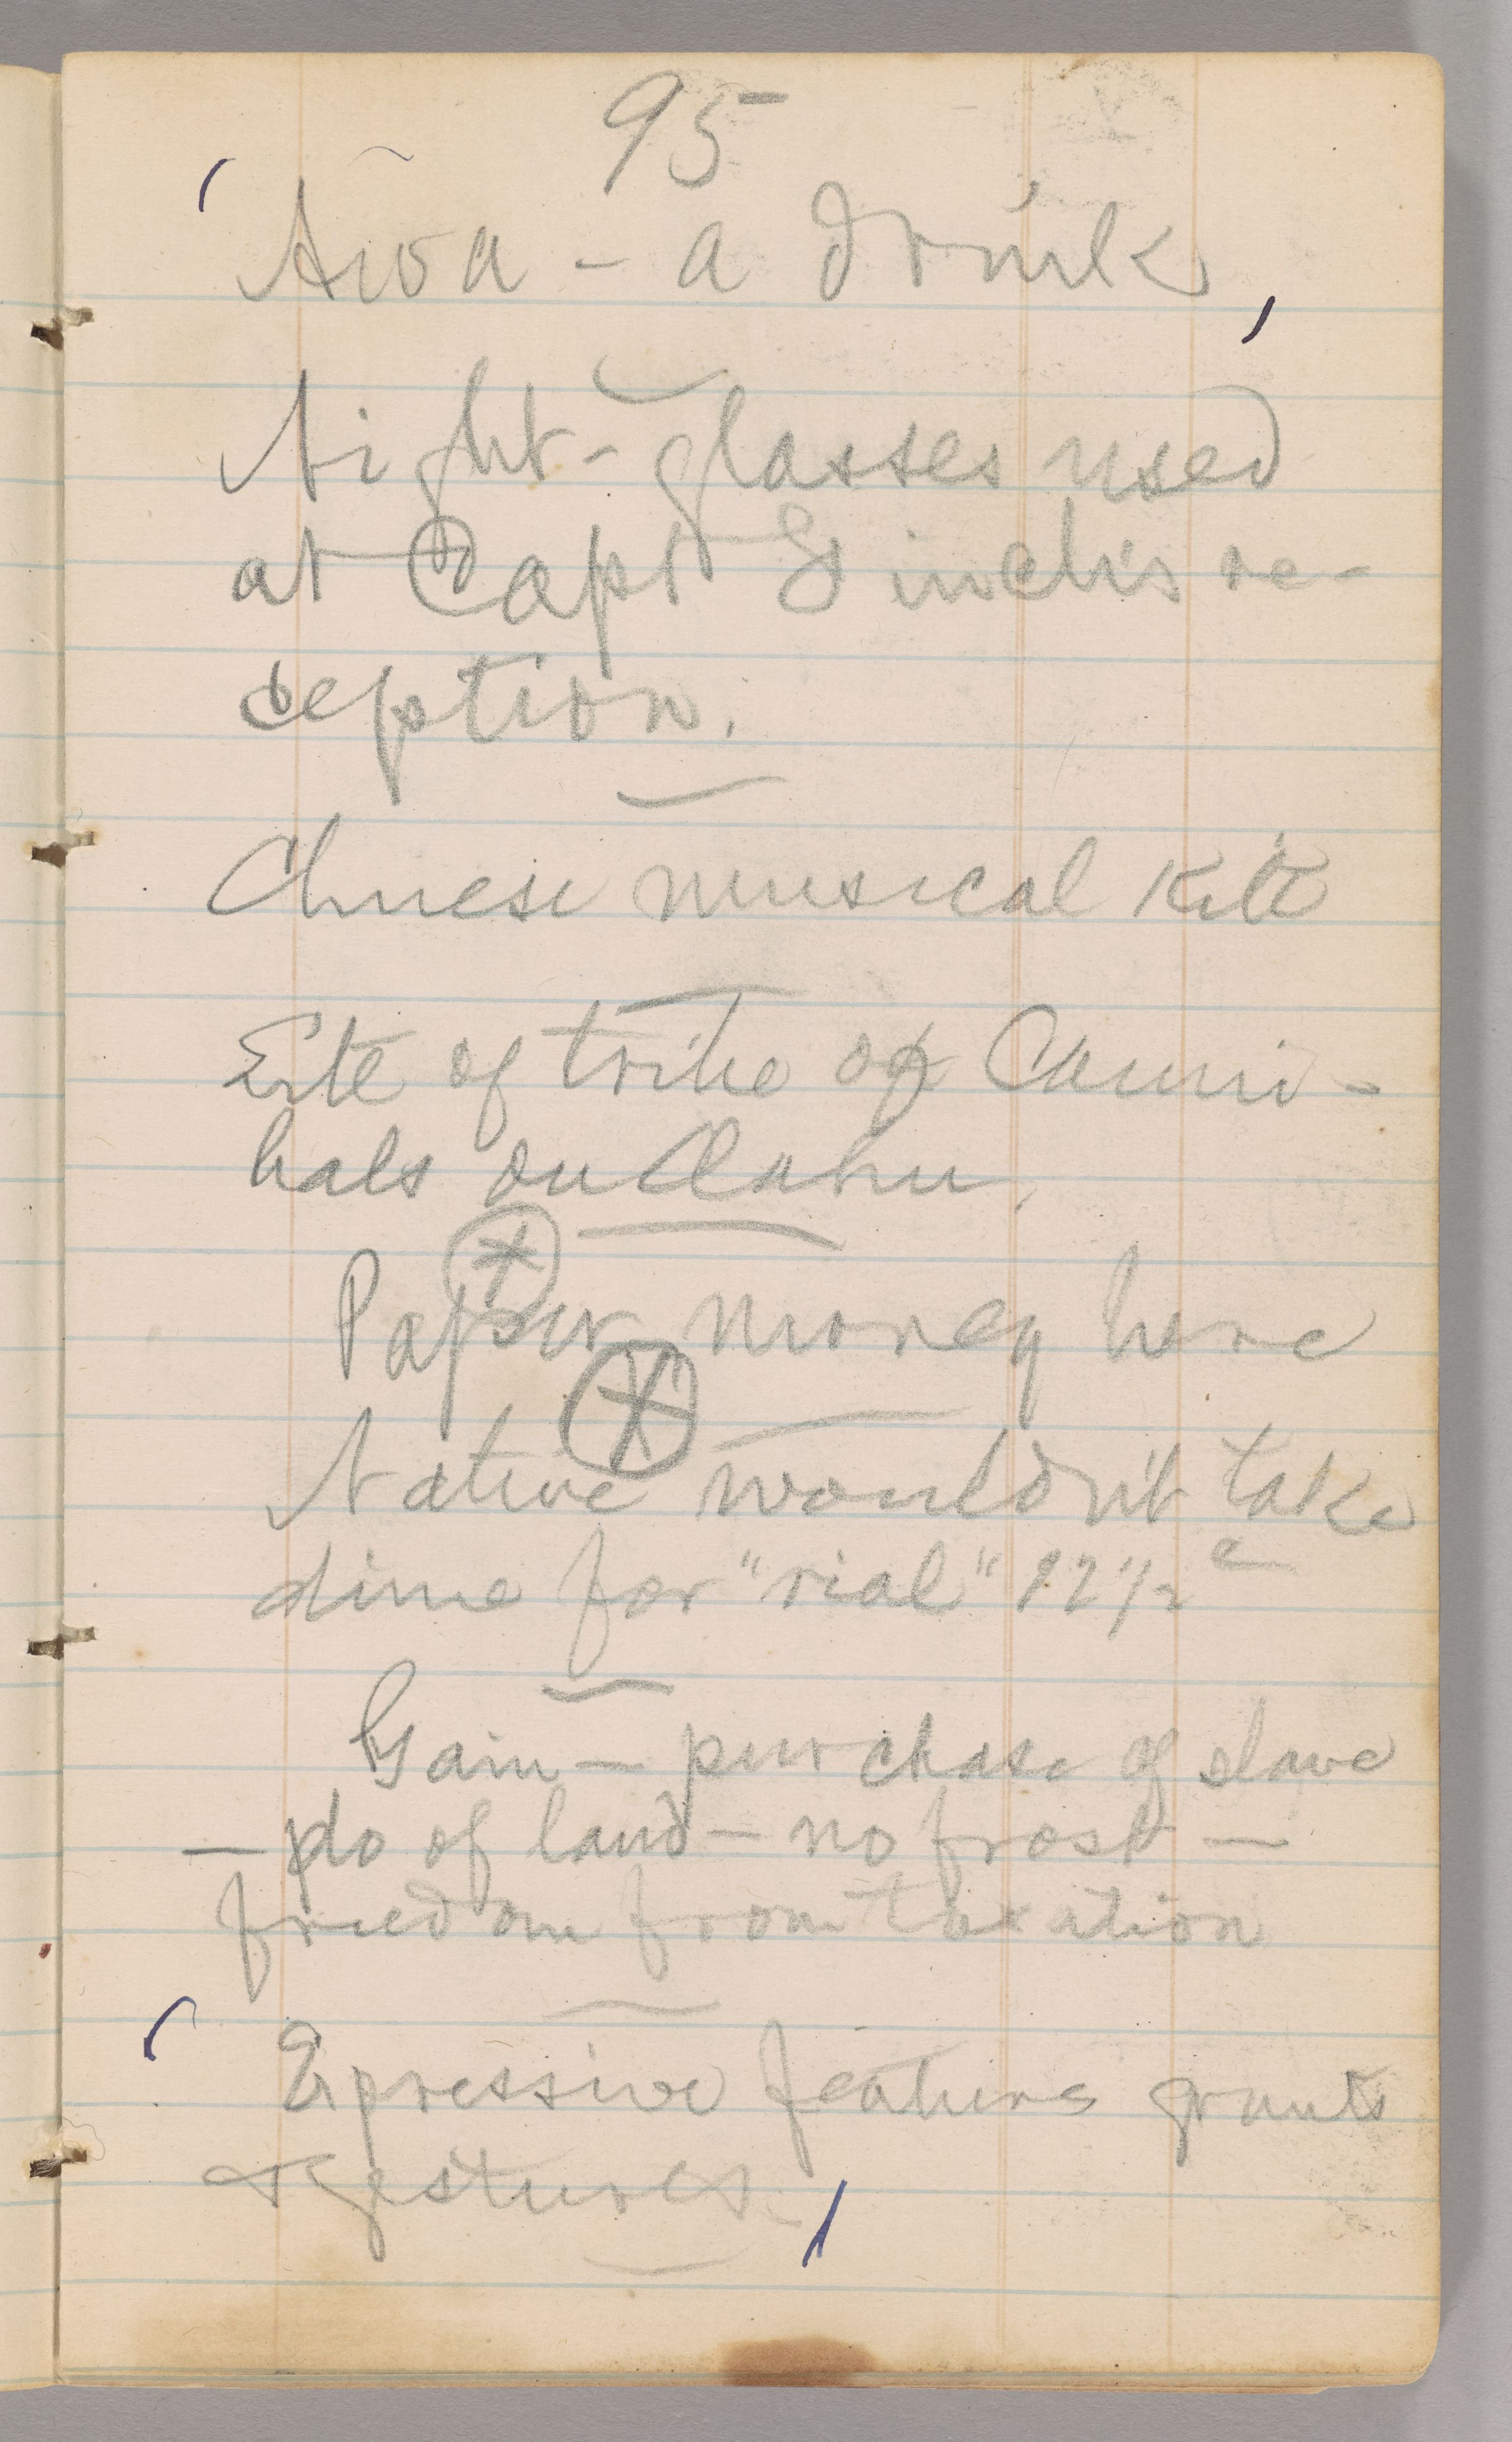 95
Awa - a drink
Night-glasses used
at Capt Finch's re-
ception.
Chinese musical kite
Site of tribe of Canni-
bals on Oahu.
Paper money here
Native wouldn't take
dime for "rial" 12 1/2 c
Gain — purchase of slave
— do of land — no frost —
freedom from taxation
Expressive features grunts
& gestures.